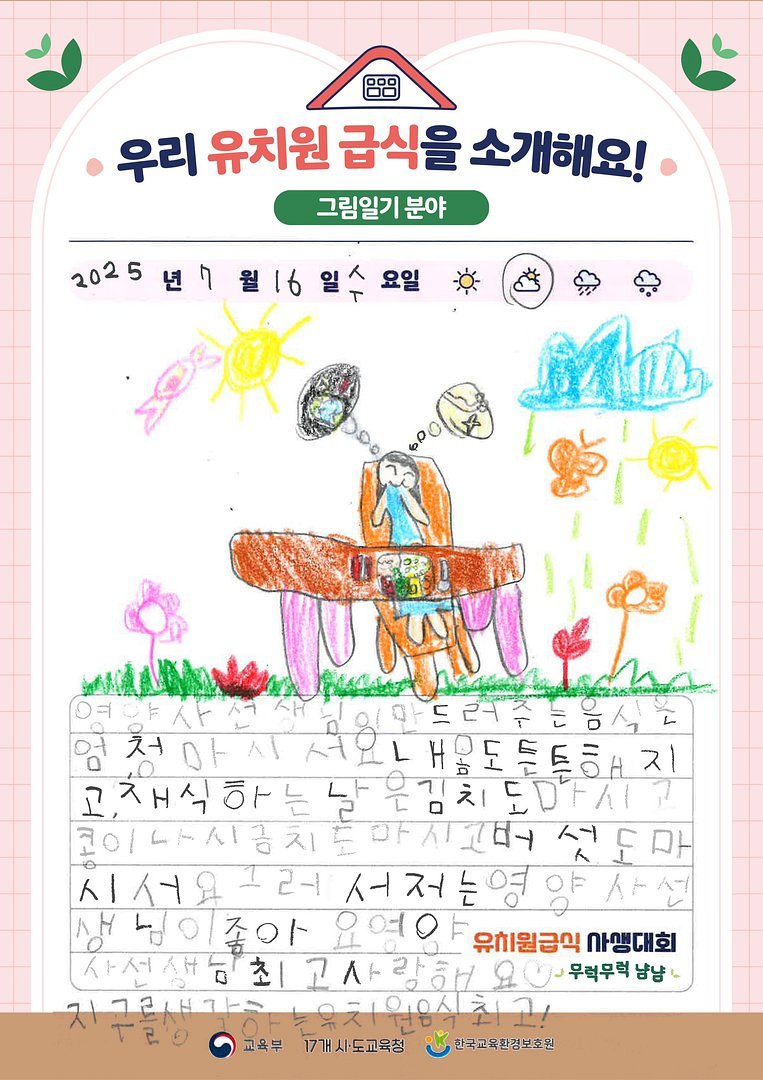 우리 유치원 급식을 소개해요!
그림일기 분야
2025 년 7 월 16 일 수 요일
영양사선생님이만드러주는음식은
엄청마시서요내몸도튼튼해지
고,채식하는날은김치도마시고
콩이나시금치도마시고버섯도마
시서요그러서저는영양사선
생님이좋아요영양
사선생님최고사랑해요♡
지구를생각하는유치원음식최고!
유치원급식 사생대회
무럭무럭 냠냠
교육부 17개 시·도교육청 한국교육환경보호원